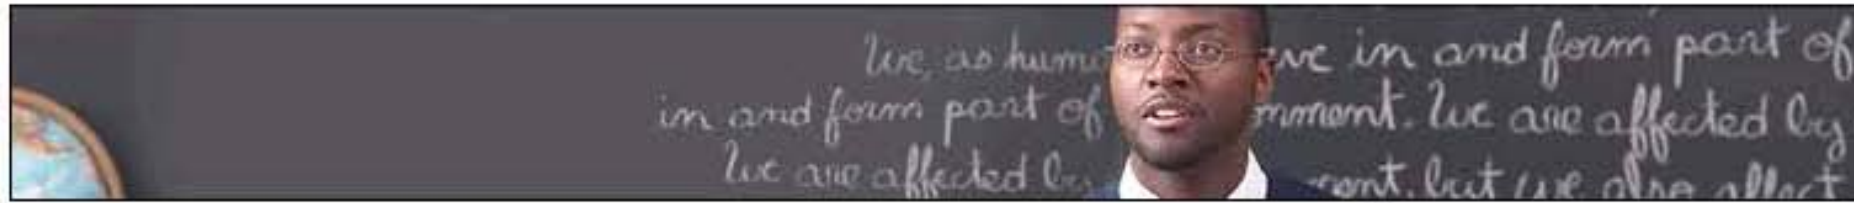 We, as hum ve in and form part of
in and form part of nment. We are affected by
We are affected by ment, but we also affect